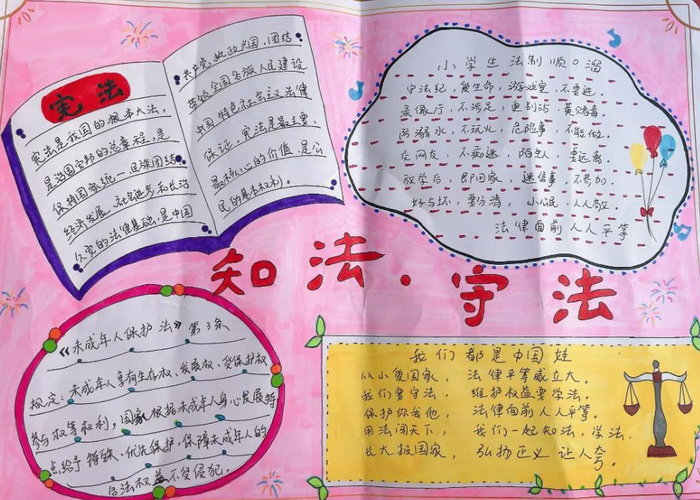 宪法
宪法是我国的根本大法,
是治国安邦的总章程,是
保持国家统一、民族团结、
经济发展、社会进步和长治
久安的法律基础,是中国
共产党执政兴国、团结
带领全国各族人民建设
中国特色社会主义法律
保证。宪法是最主要、
最核心的价值,是公
民的基本权利。
小学生法制顺口溜
守法纪,爱生命,游戏室,不要进
录像厅,不涉足,更别沾,黄赌毒
防溺水,不玩火,危险事,不能做
交网友,不痴迷,陌生人,要远离
放学后,即回家,迷信事,不参加
好与坏,要分清,小公民,人人敬
法律面前人人平等
知法·守法
《未成年人保护法》第3条
规定:未成年人享有生存权、发展权、受保护权
参与权等权利,国家根据未成年人身心发展特
点给予特殊、优先保护,保障未成年人的
合法权益不受侵犯.
我们都是中国娃
从小爱国家, 法律平等威立大。
我们要守法, 维护权益要学法。
保护你我他, 法律面前人人平等。
用法闯天下, 我们一起知法,学法,
长大报国家, 弘扬正义 让人夸。